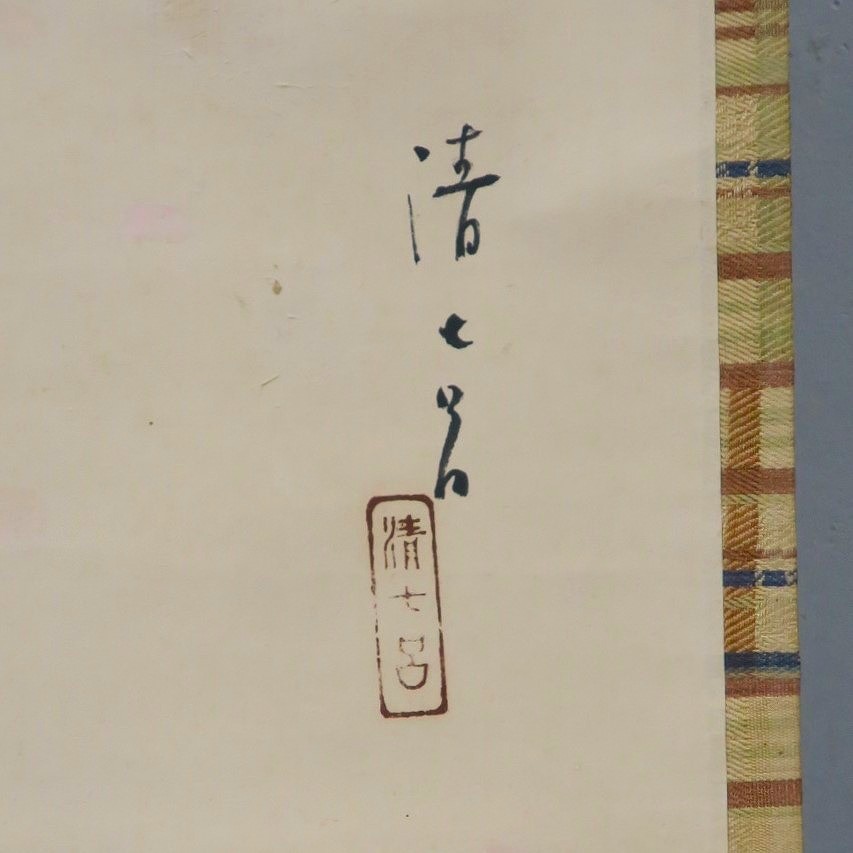 清七呂
清七呂